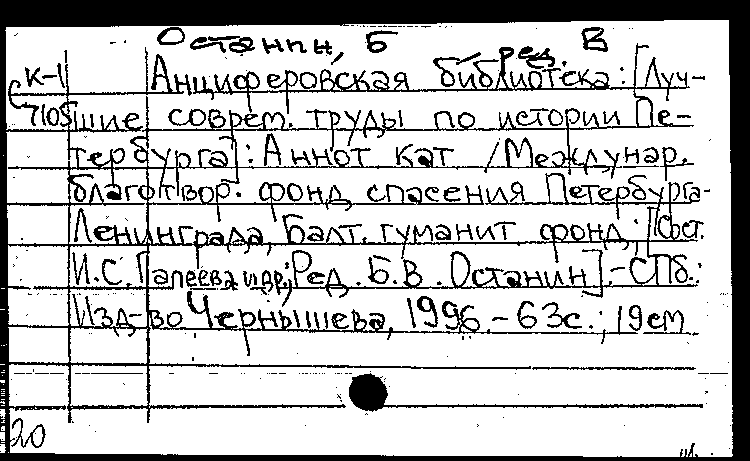 Останин, Б ред. В
К-1 Анциферовская библиотека: [Луч-
С 7105 шие соврем. труды по истории Пе-
тербурга]: Аннот кат /Междунар.
благотвор. фонд спасения Петербурга-
Ленинграда, Балт. гуманит фонд; [Сост.
И.С. и др.; Ред. Б.В. Останин].-СПб.:
Изд-во Чернышева, 1996.-63с.; 19см
20